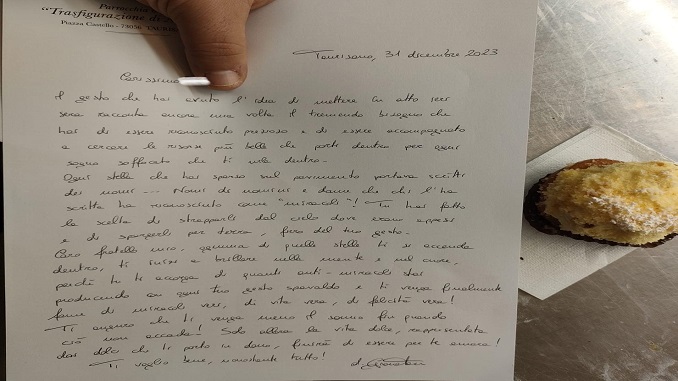 Parrocchia
"Trasfigurazione di
Piazza Castello - 73056
Taurisano, 31 dicembre 2023
Carissimo
il gesto che hai avuto l'idea di mettere in atto ieri
sera racconta ancora una volta il tremendo bisogno che
hai di essere riconosciuto prezioso e di essere accompagnato
a cercare le risorse più belle che porti dentro per ogni
sogno soffocato che ti urla dentro.
Ogni stella che hai sparso sul pavimento portava scritti
dei nomi ... Nomi di uomini e donne che chi l'ha
scritta ha riconosciuto come "miracoli"! Tu hai fatto
la scelta di strapparli dal cielo dove erano appesi
e di spargerli per terra, fieri del tuo gesto.
Caro fratello mio, ognuna di quelle stelle ti si accenda
dentro, ti riesca a brillare nella mente e nel cuore,
perché tu ti accorga di quanti anti-miracoli stai
producendo con ogni tuo gesto spavaldo e ti venga finalmente
fame di miracoli veri, di vita vera, di felicità vera!
Ti auguro che ti venga meno il sonno fin quando
ciò non accada! Solo allora la vita dolce, rappresentata
dai dolci che ti porto in dono, finirà di essere per te amara!
Ti voglio bene, nonostante tutto!